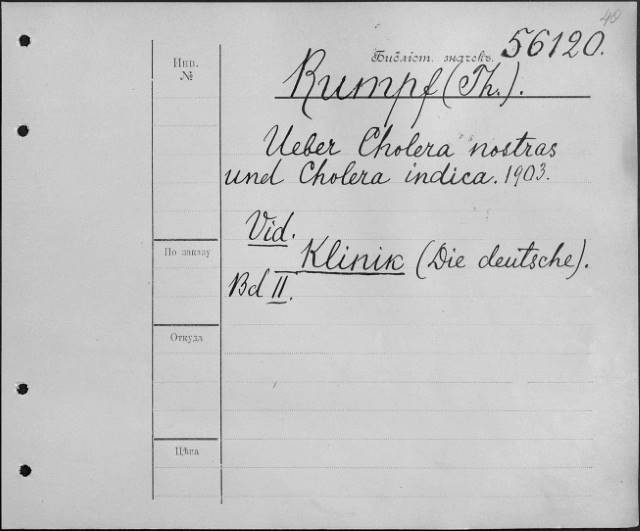 49
56120.
Инв. Библіот. значекъ.
№
Rumpf (Th.).
Ueber Cholera nostras
und Cholera indica. 1903.
Vid.
По заказу
Klinik (Die deutsche).
Bd II.
Откуда
Цѣна